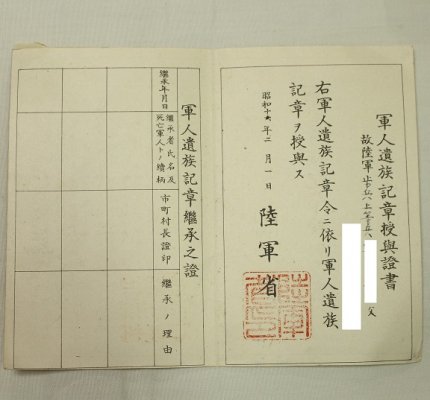 軍人遺族記章授與證書
故陸軍
父
右軍人遺族記章令ニ依リ軍人遺族
記章ヲ授與ス
昭和十六年二月一日
陸軍省
軍人遺族記章繼承之證
繼承年月日
繼承者氏名及
死亡軍人トノ續柄
市町村長證印
繼承ノ理由